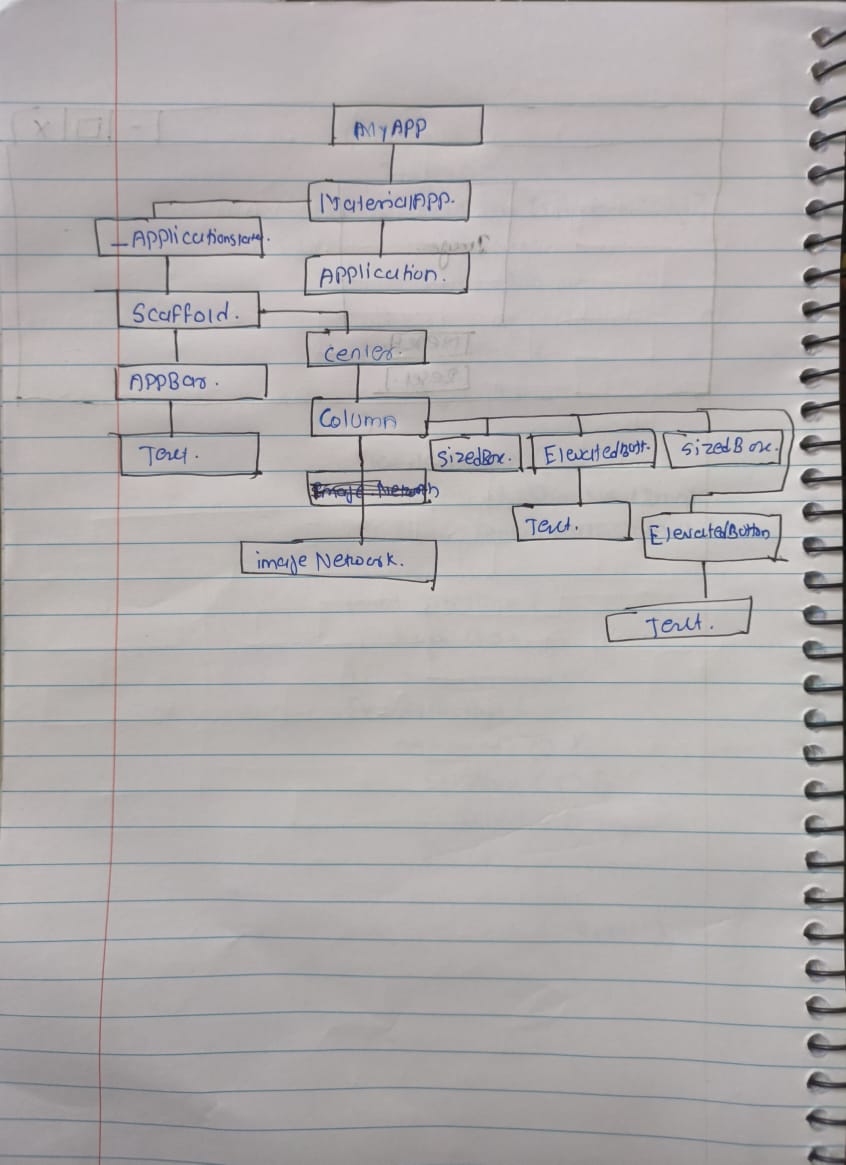 MyAPP
MaterialAPP.
_Applicationstate.
Application.
Scaffold.
Center.
APPBar.
Column
Text.
SizedBox.
ElevatedButt.
SizedBox.
Image.Network
Text.
ElevatedButton
image Network.
Text.